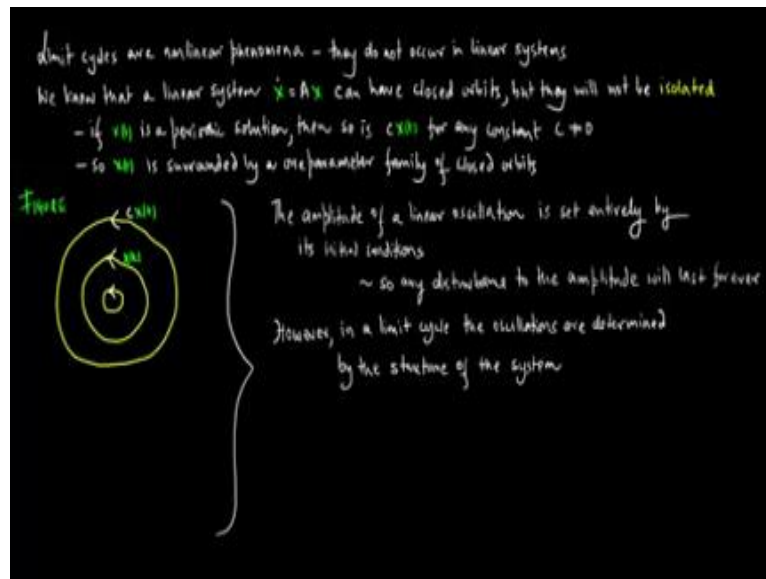 Limit cycles are nonlinear phenomena – they do not occur in linear systems
We know that a linear system ẋ = Ax can have closed orbits, but they will not be isolated
– if x(t) is a periodic solution, then so is cx(t) for any constant C ≠ 0
– so x(t) is surrounded by a one parameter family of closed orbits
FIGURE
cx(t)
x(t)
The amplitude of a linear oscillation is set entirely by
its initial conditions
~ so any disturbance to the amplitude will last forever
However, in a limit cycle the oscillations are determined
by the structure of the system